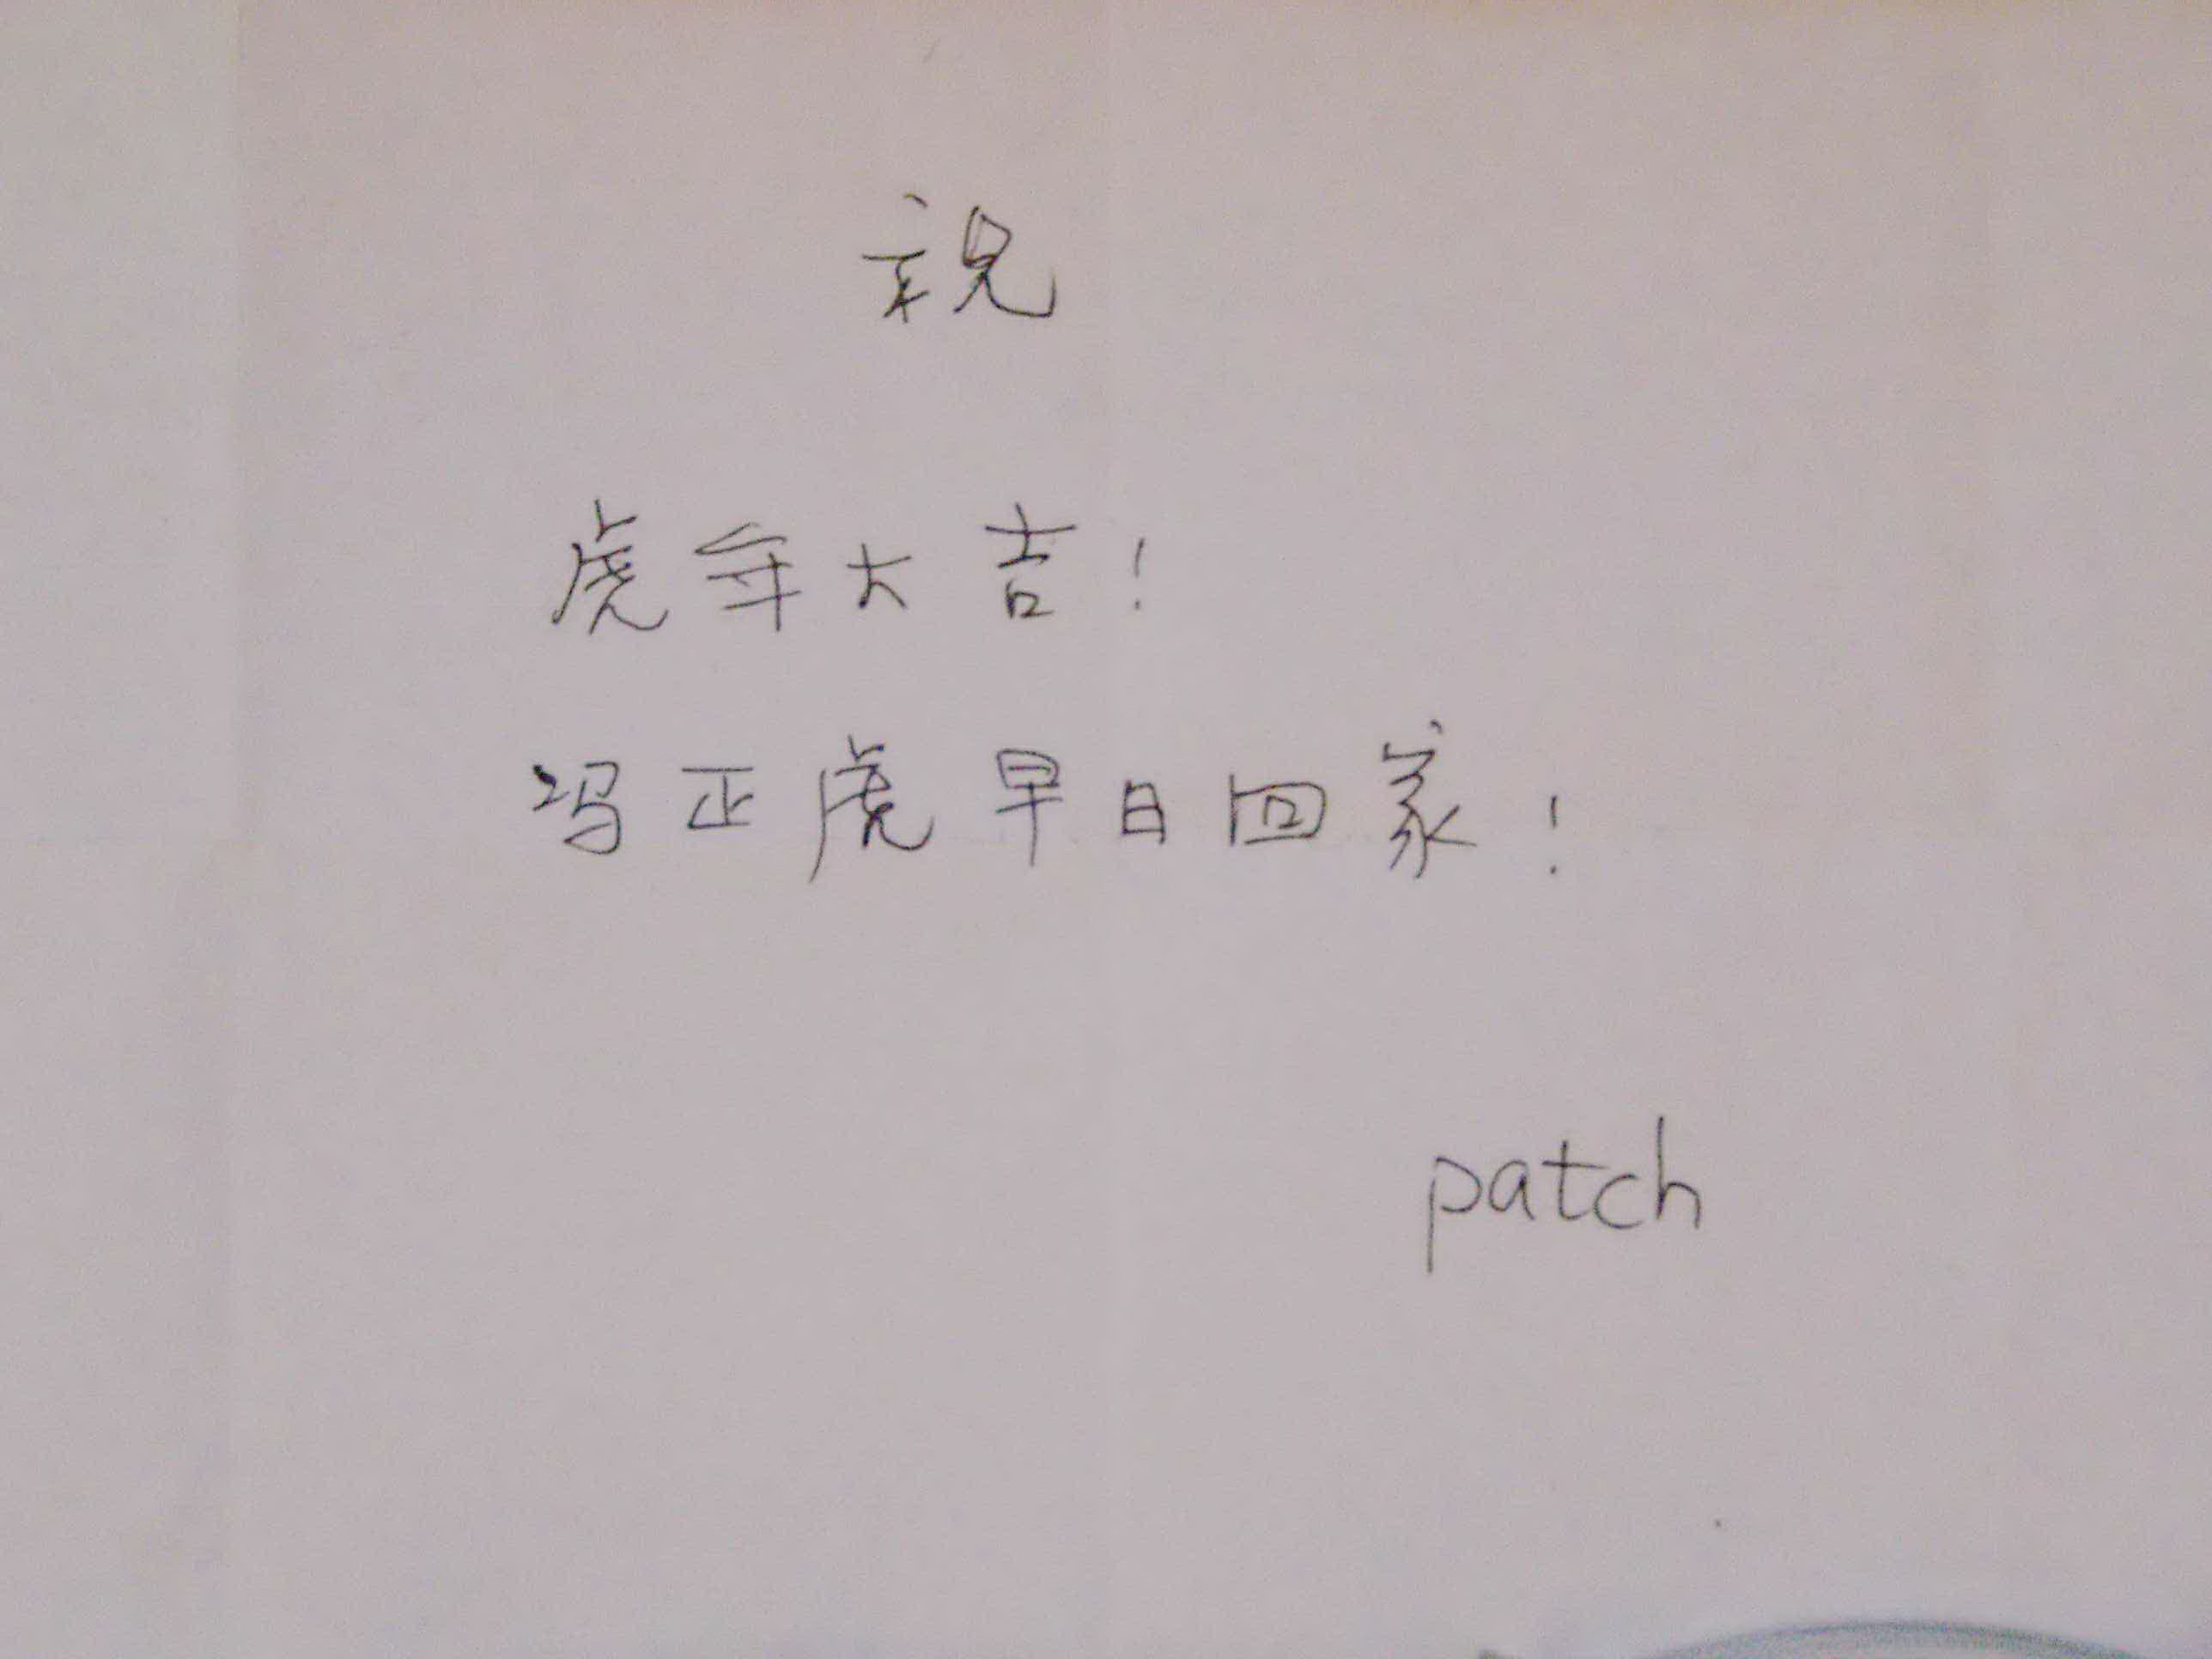 祝
虎年大吉!
冯正虎早日回家!
patch